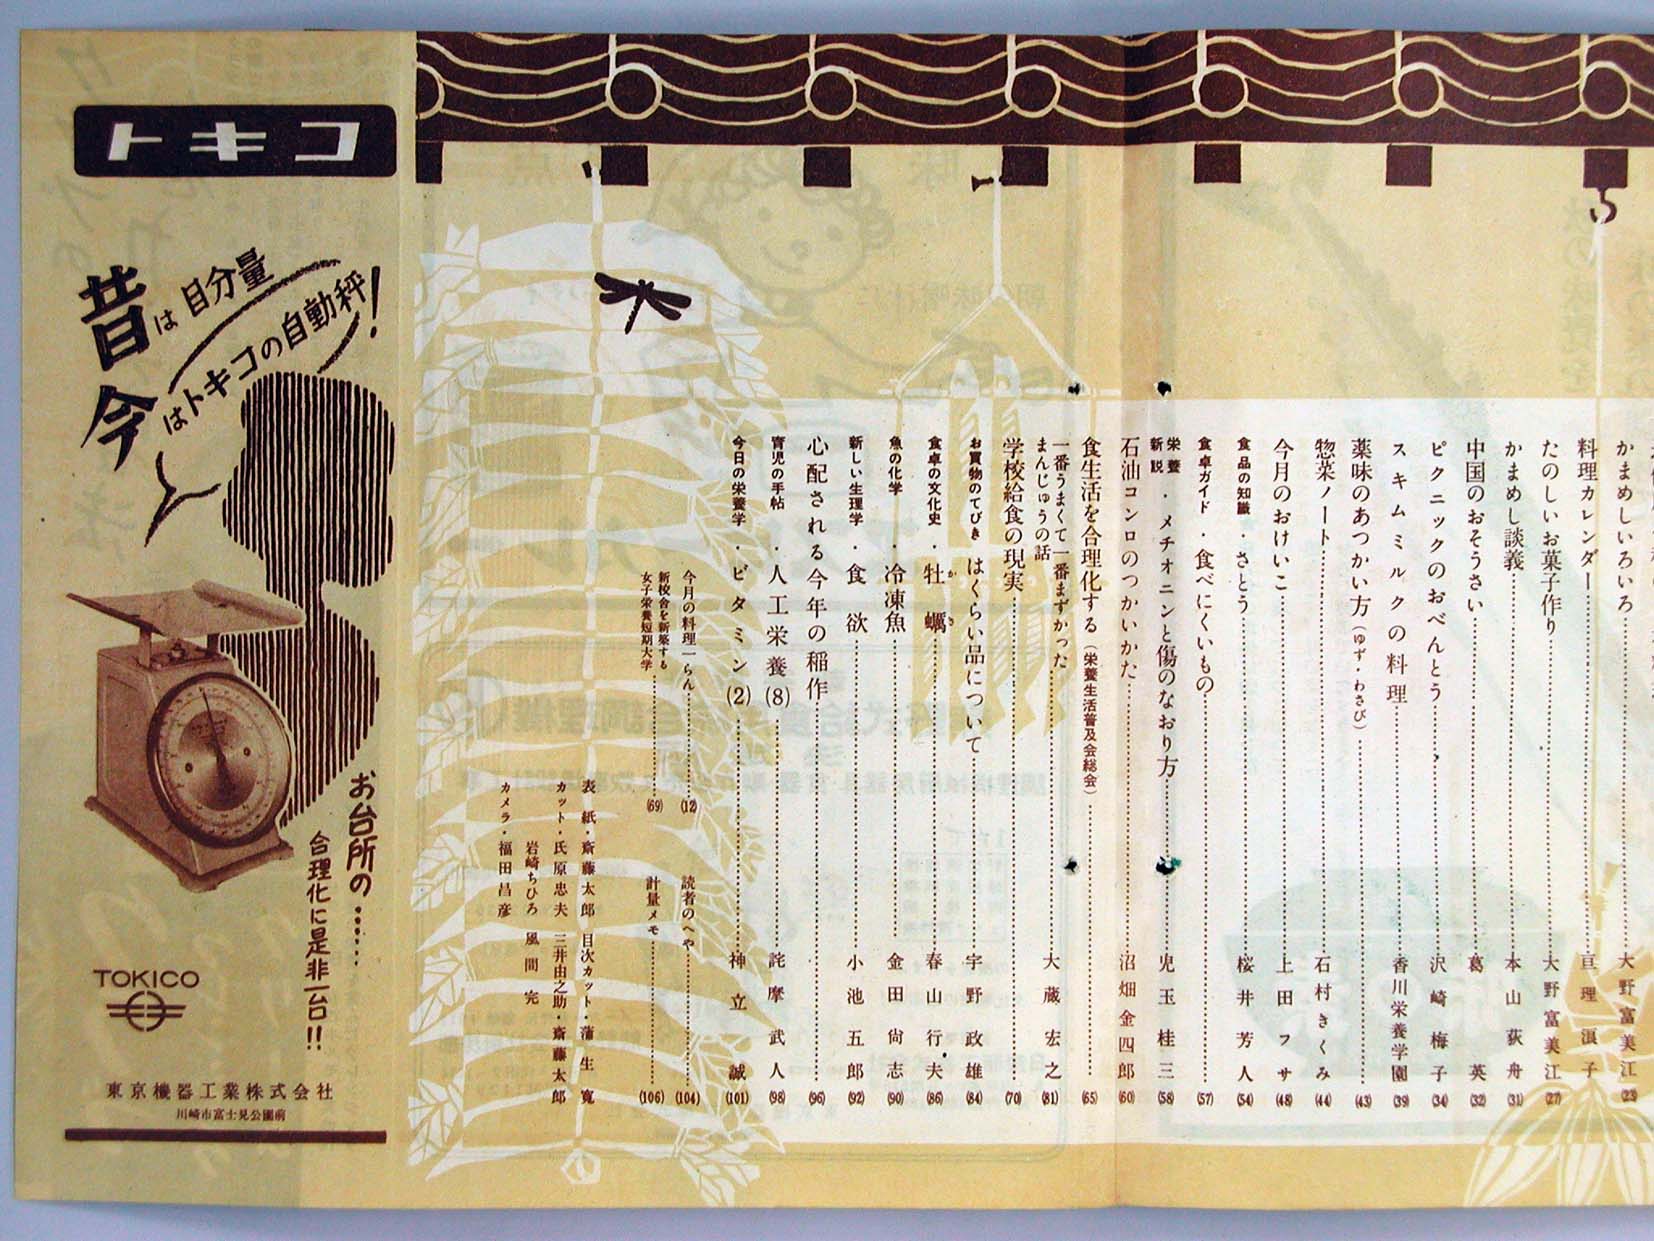 かまめしいろいろ……大野富美江(23)
料理カレンダー……亘理浪子
たのしいお菓子作り……大野富美江(27)
かまめし談義……本山荻舟(31)
中国のおそうさい……葛英(32)
ピクニックのおべんとう……沢崎梅子(34)
スキムミルクの料理……香川栄養学園(39)
薬味のあつかい方(ゆず・わさび)……(43)
惣菜ノート……石村きくみ(44)
今月のおけいこ……上田フサ(48)
食品の知識・さとう……桜井芳人(54)
食卓ガイド・食べにくいもの……(57)
栄養新説・メチオニンと傷のなおり方……児玉桂三(58)
石油コンロのつかいかた……沼畑金四郎(60)
食生活を合理化する(栄養生活普及会総会)……(65)
一番うまくて一番まずかった
まんじゅうの話……大蔵宏之(81)
学校給食の現実……(70)
お買物のてびき はくらい品について……宇野政雄(84)
食卓の文化史・牡蠣(かき)……春山行夫(86)
魚の化学・冷凍魚……金田尚志(90)
新しい生理学・食欲……小池五郎(92)
心配される今年の稲作……(96)
育児の手帖・人工栄養(8)……詫摩武人(98)
今日の栄養学・ビタミン(2)……神立誠(101)
今月の料理一らん……(12)
読者のへや……(104)
新校舎を新築する
女子栄養短期大学……(69)
計量メモ……(106)
表紙・斎藤太郎 目次カット・蒲生寛
カット・氏原忠夫 三井由之助・斎藤太郎
岩崎ちひろ 風間完
カメラ・福田昌彦
トキコ
昔は目分量
今はトキコの自動秤!
お台所の……
合理化に是非一台!!
TOKICO
東京機器工業株式会社
川崎市富士見公園前